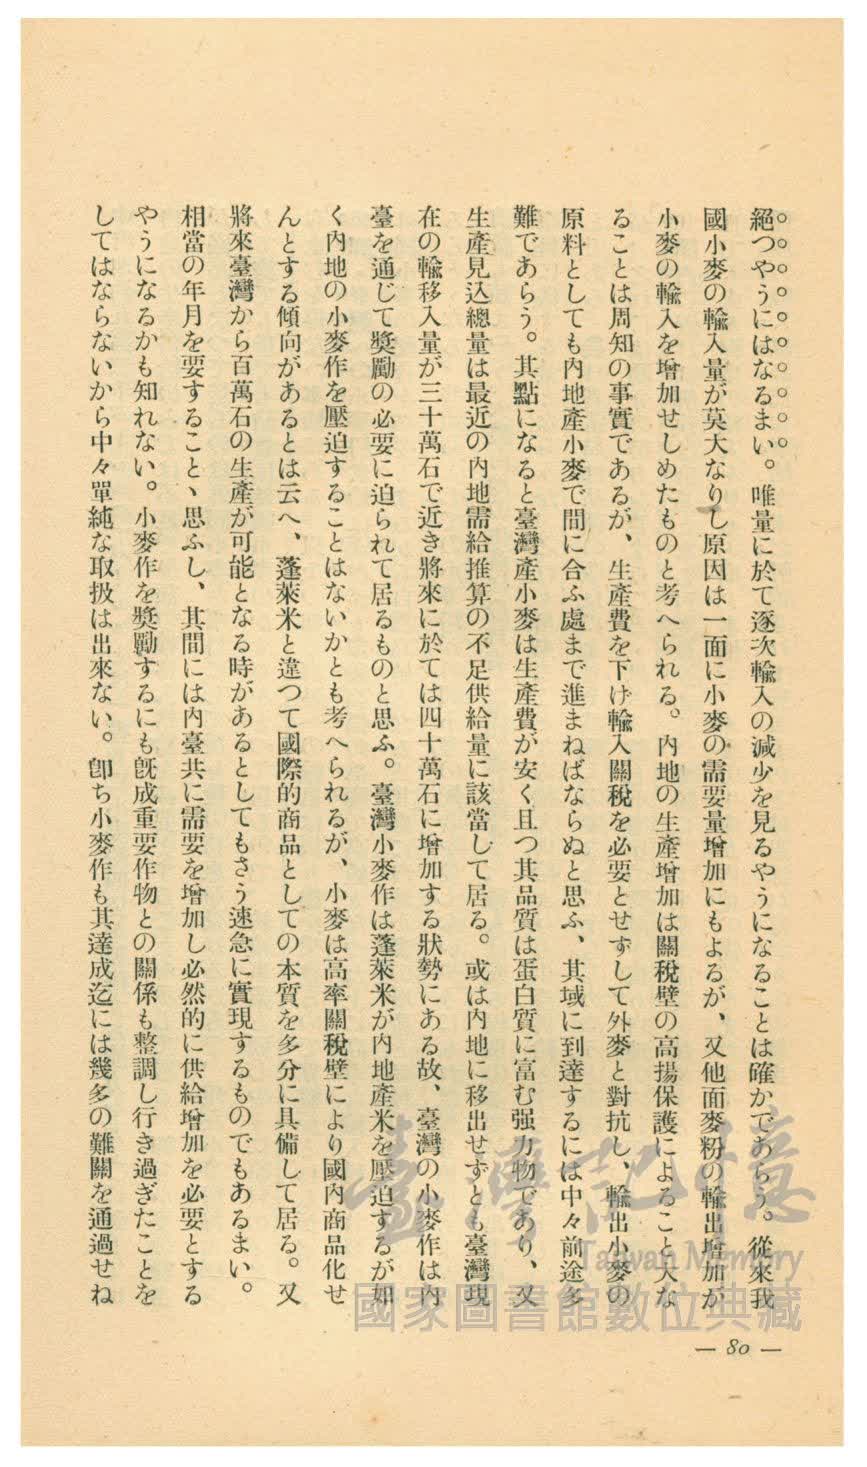 絕つやうにはなるまい。唯量に於て逐次輸入の減少を見るやうになることは確かであらう。從來我
國小麥の輸入量が莫大なりし原因は一面に小麥の需要量增加にもよるが、又他面麥粉の輸出增加が
小麥の輸入を增加せしめたものと考へられる。內地の生產增加は關稅壁の高揚保護によること大な
ることは周知の事實であるが、生產費を下げ輸入關稅を必要とせずして外麥と對抗し、輸出小麥の
原料としても內地產小麥で間に合ふ處まで進まねばならぬと思ふ、其域に到達するには中々前途多
難であらう。其點になると臺灣產小麥は生產費が安く且つ其品質は蛋白質に富む强力物であり、又
生產見込總量は最近の內地需給推算の不足供給量に該當して居る。或は內地に移出せずとも臺灣現
在の輸移入量が三十萬石で近き將來に於ては四十萬石に增加する狀勢にある故、臺灣の小麥作は內
臺を通じて奬勵の必要に迫られて居るものと思ふ。臺灣小麥作は蓬萊米が內地產米を壓迫するが如
く內地の小麥作を壓迫することはないかとも考へられるが、小麥は高率關稅壁により國內商品化せ
んとする傾向があるとは云へ、蓬萊米と違つて國際的商品としての本質を多分に具備して居る。又
將來臺灣から百萬石の生產が可能となる時があるとしてもさう速急に實現するものでもあるまい。
相當の年月を要することゝ思ふし、其間には內臺共に需要を增加し必然的に供給增加を必要とする
やうになるかも知れない。小麥作を奬勵するにも旣成重要作物との關係も整調し行き過ぎたことを
してはならないから中々單純な取扱は出來ない。卽ち小麥作も其達成迄には幾多の難關を通過せね
— 80 —
臺灣記憶
Taiwan Memory
國家圖書館數位典藏